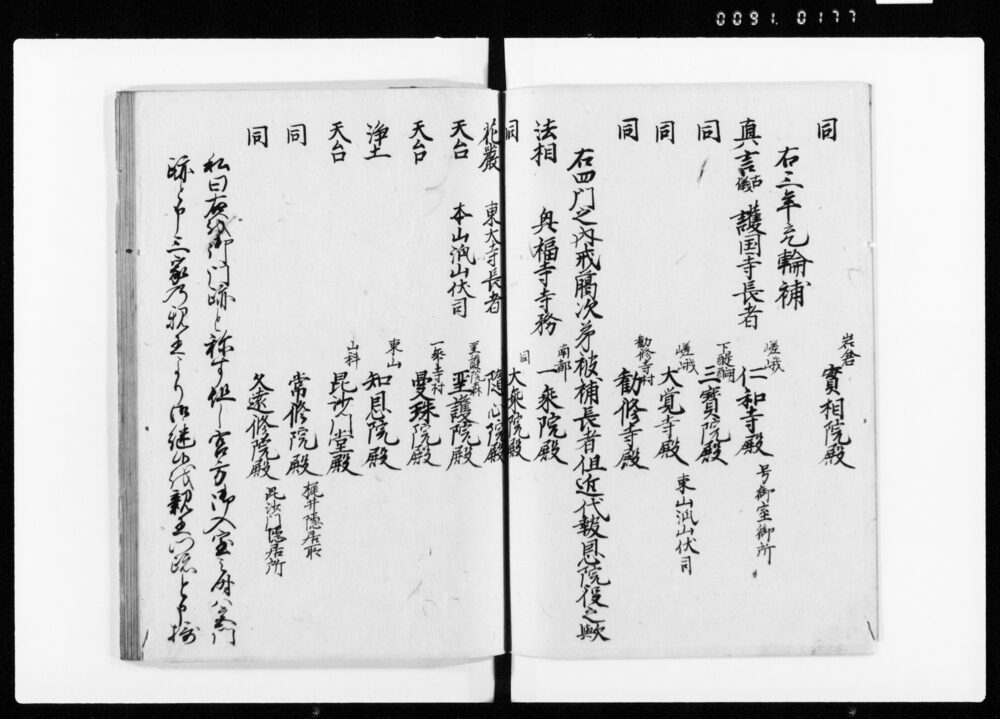 0091.0177
同 岩倉 實相院殿
右三年充輪補
真言古儀 護国寺長者 嵯峨 仁和寺殿 号御室御所
同 下醍醐 三寳院殿
同 嵯峨 大覚寺殿 東山派山伏司
同 勧修寺村 勧修寺殿
右四門之内戒臈次第被補長者但近代報恩院役之歟
法相 興福寺寺務 南都 一乗院殿
同 同 大乗院殿
花嚴 東大寺長者 随心院殿
天台 本山派山伏司 聖護院森 聖護院殿
天台 一乗寺村 曼珠院殿
浄土 東山 知恩院殿
天台 山科 毘沙門堂殿
同 常修院殿 梶井隠居所
同 久遠修院殿 毘沙門隠居所
私曰右代御門跡と称す但し宮方御入室之時ハ宮門
跡と申三家乃親王より御継出代親王門跡と申